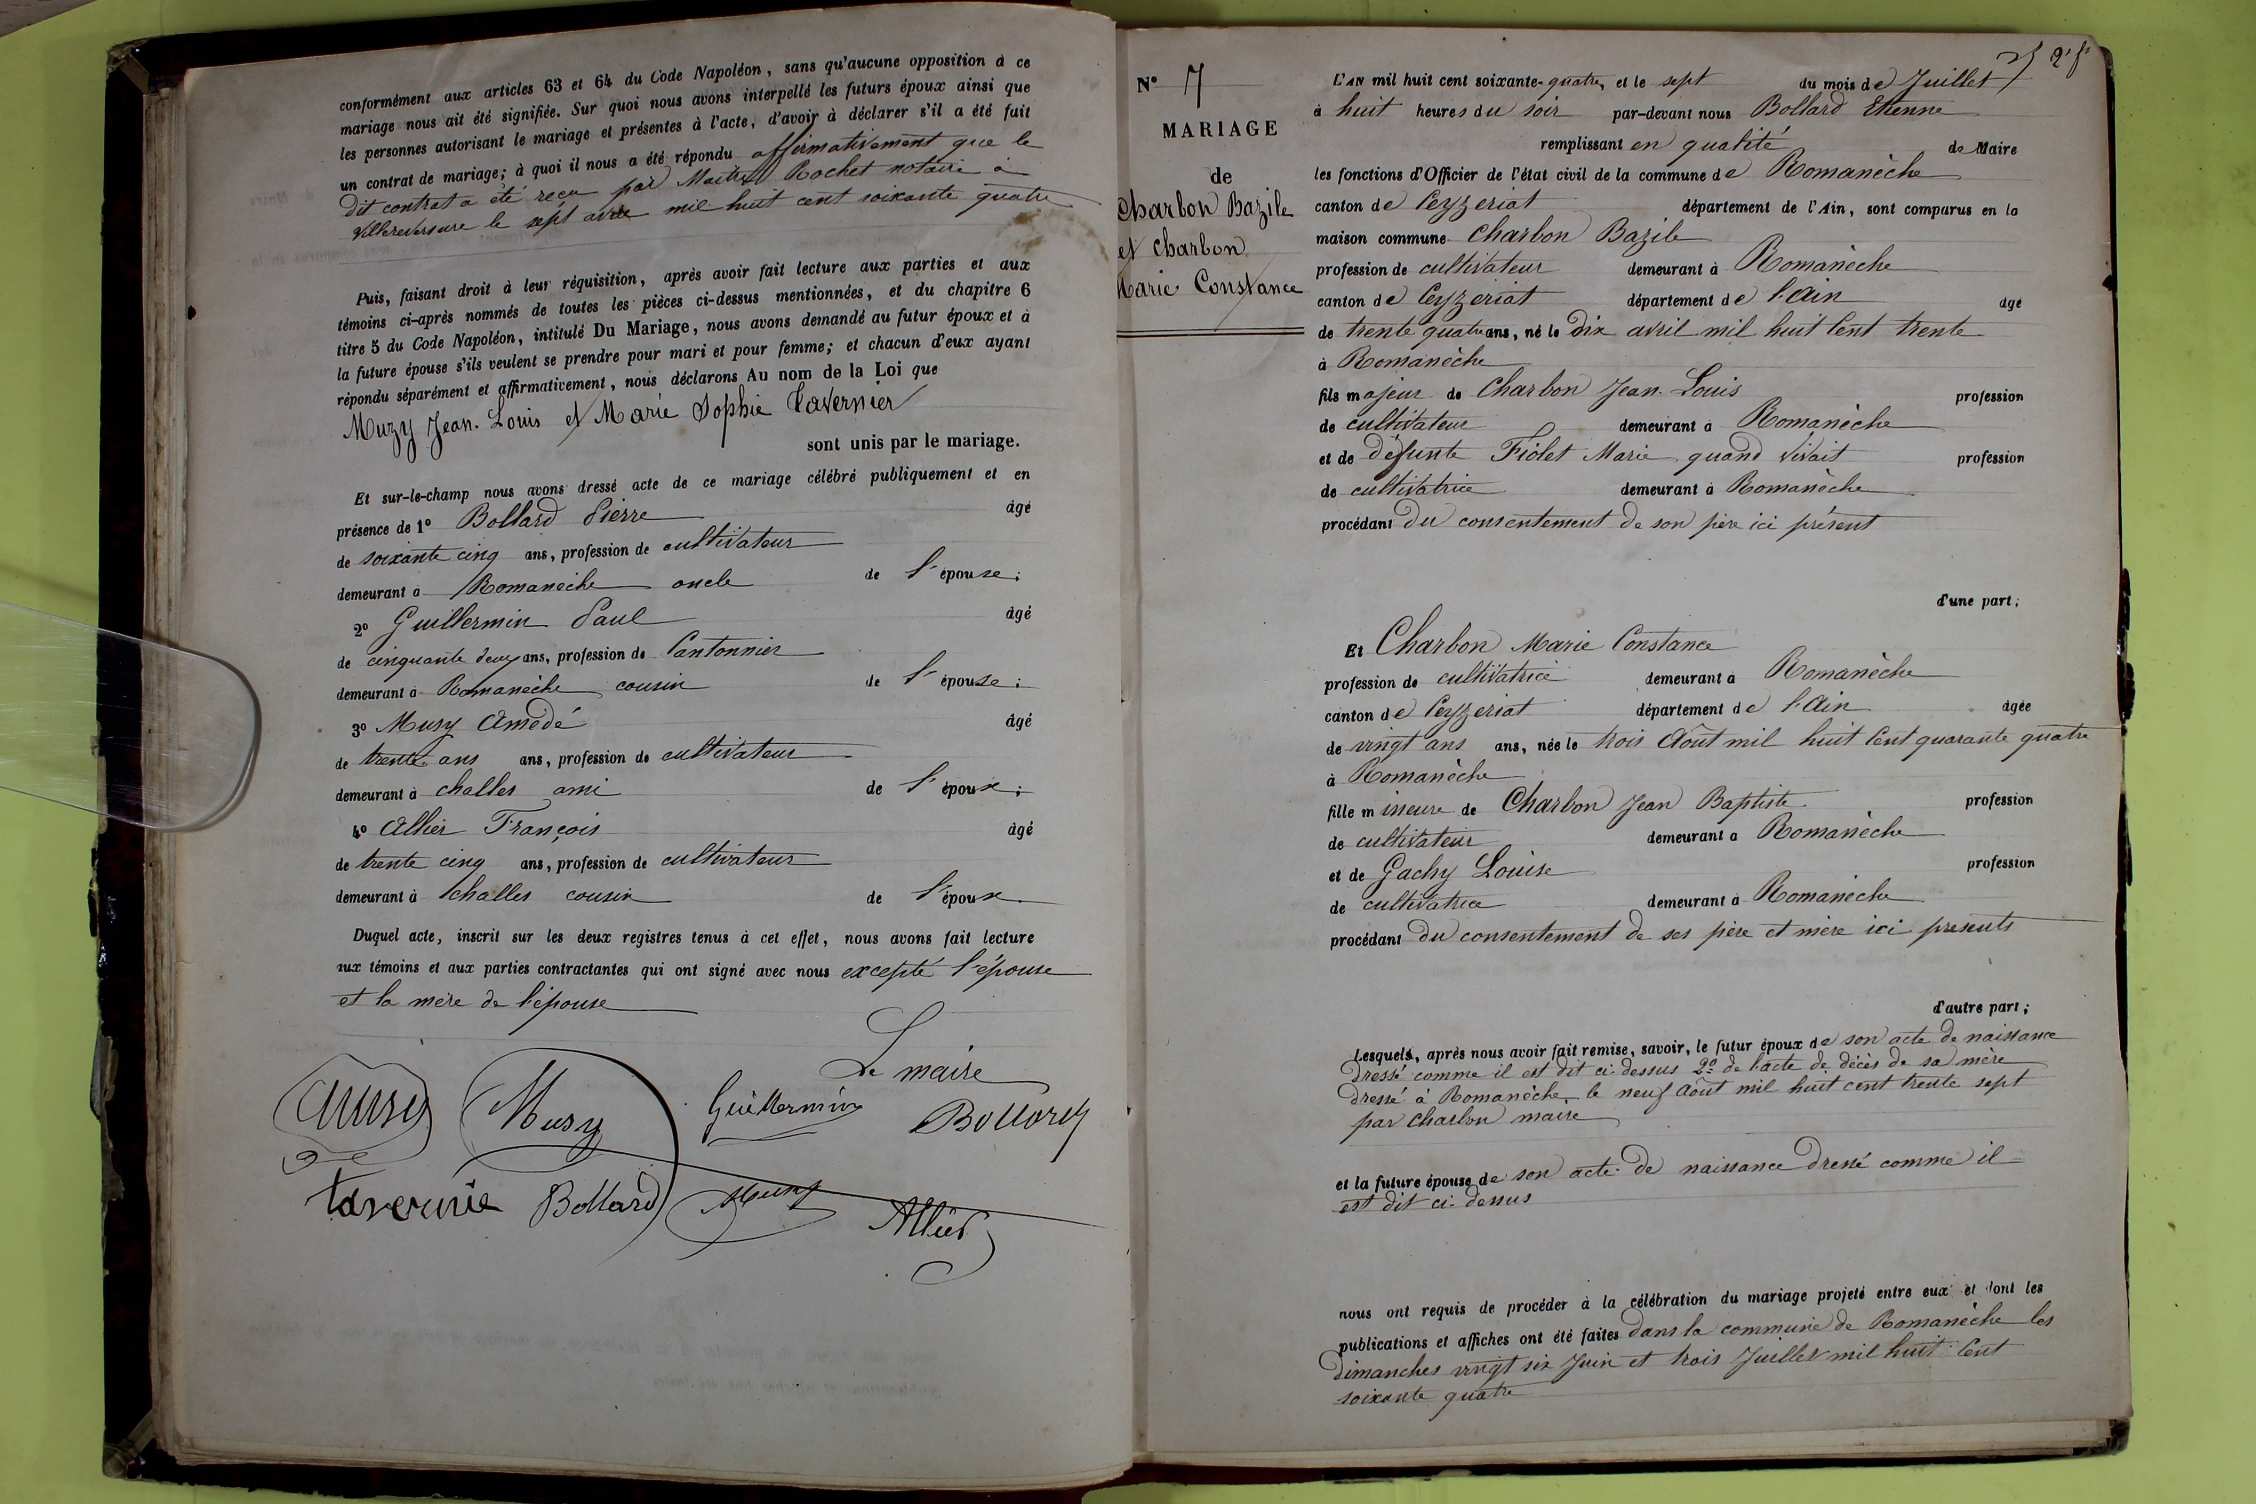 conformément aux articles 63 et 64 du Code Napoléon, sans qu'aucune opposition à ce
mariage nous ait été signifiée. Sur quoi nous avons interpellé les futurs époux ainsi que
les personnes autorisant le mariage et présentes à l'acte, d'avoir à déclarer s'il a été fait
un contrat de mariage; à quoi il nous a été répondu affirmativement que le
dit contrat a été reçu par Maitre Rochet notaire à
Villereversure le sept avril mil huit cent soixante quatre
Puis, faisant droit à leur réquisition, après avoir fait lecture aux parties et aux
témoins ci-après nommés de toutes les pièces ci-dessus mentionnées, et du chapitre 6
titre 5 du Code Napoléon, intitulé Du Mariage, nous avons demandé au futur époux et à
la future épouse s'ils veulent se prendre pour mari et pour femme; et chacun d'eux ayant
répondu séparément et affirmativement, nous déclarons Au nom de la Loi que
Muzy Jean-Louis et Marie Sophie Tavernier
sont unis par le mariage.
Et sur-le-champ nous avons dressé acte de ce mariage célébré publiquement et en
présence de 1° Bollard Pierre âgé
de soixante cinq ans, profession de cultivateur
demeurant à Romanèche oncle de l'épouse;
2° Guillermin Paul âgé
de cinquante deux ans, profession de Cantonnier
demeurant à Romanèche cousin de l'épouse;
3° Musy Amédé âgé
de trente ans ans, profession de cultivateur
demeurant à challes ami de l'époux;
4° Allier François âgé
de trente cinq ans, profession de cultivateur
demeurant à challes cousin de l'époux
Duquel acte, inscrit sur les deux registres tenus à cet effet, nous avons fait lecture
aux témoins et aux parties contractantes qui ont signé avec nous excepté l'épouse
et la mère de l'épouse
Le maire
Musy Guillermin Bollard
tavernie Bollard Musy Allier
25
N° 7
MARIAGE
de
Charbon Bazile
et Charbon
Marie Constance
L'AN mil huit cent soixante-quatre, et le sept du mois de Juillet
à huit heures du soir par-devant nous Bollard Etienne
remplissant en qualité de Maire
les fonctions d'Officier de l'état civil de la commune de Romanèche
canton de Ceyzeriat département de l'Ain, sont comparus en la
maison commune Charbon Bazile
profession de cultivateur demeurant à Romanèche
canton de Ceyzeriat département de l'Ain âgé
de trente quatre ans, né le dix avril mil huit Cent trente
à Romanèche
fils majeur de Charbon Jean-Louis profession
de cultivateur demeurant à Romanèche
et de défunte Fiolet Marie quand vivait profession
de cultivatrice demeurant à Romanèche
procédant du consentement de son père ici présent
d'une part;
Et Charbon Marie Constance
profession de cultivatrice demeurant à Romanèche
canton de Ceyzeriat département de l'Ain âgée
de vingt ans ans, née le trois Août mil huit Cent quarante quatre
à Romanèche
fille mineure de Charbon Jean Baptiste profession
de cultivateur demeurant à Romanèche
et de Gachy Louise profession
de cultivatrice demeurant à Romanèche
procédant du consentement de ses père et mère ici presents
d'autre part;
Lesquels, après nous avoir fait remise, savoir, le futur époux de son acte de naissance
dressé comme il est dit ci-dessus 2° de l'acte de décès de sa mère
dressé à Romanèche le neuf Août mil huit cent trente sept
par Charbon maire
et la future épouse de son acte de naissance dressé comme il
est dit ci-dessus
nous ont requis de procéder à la célébration du mariage projeté entre eux et dont les
publications et affiches ont été faites dans la commune de Romanèche les
dimanches vingt six Juin et trois Juillet mil huit Cent
soixante quatre